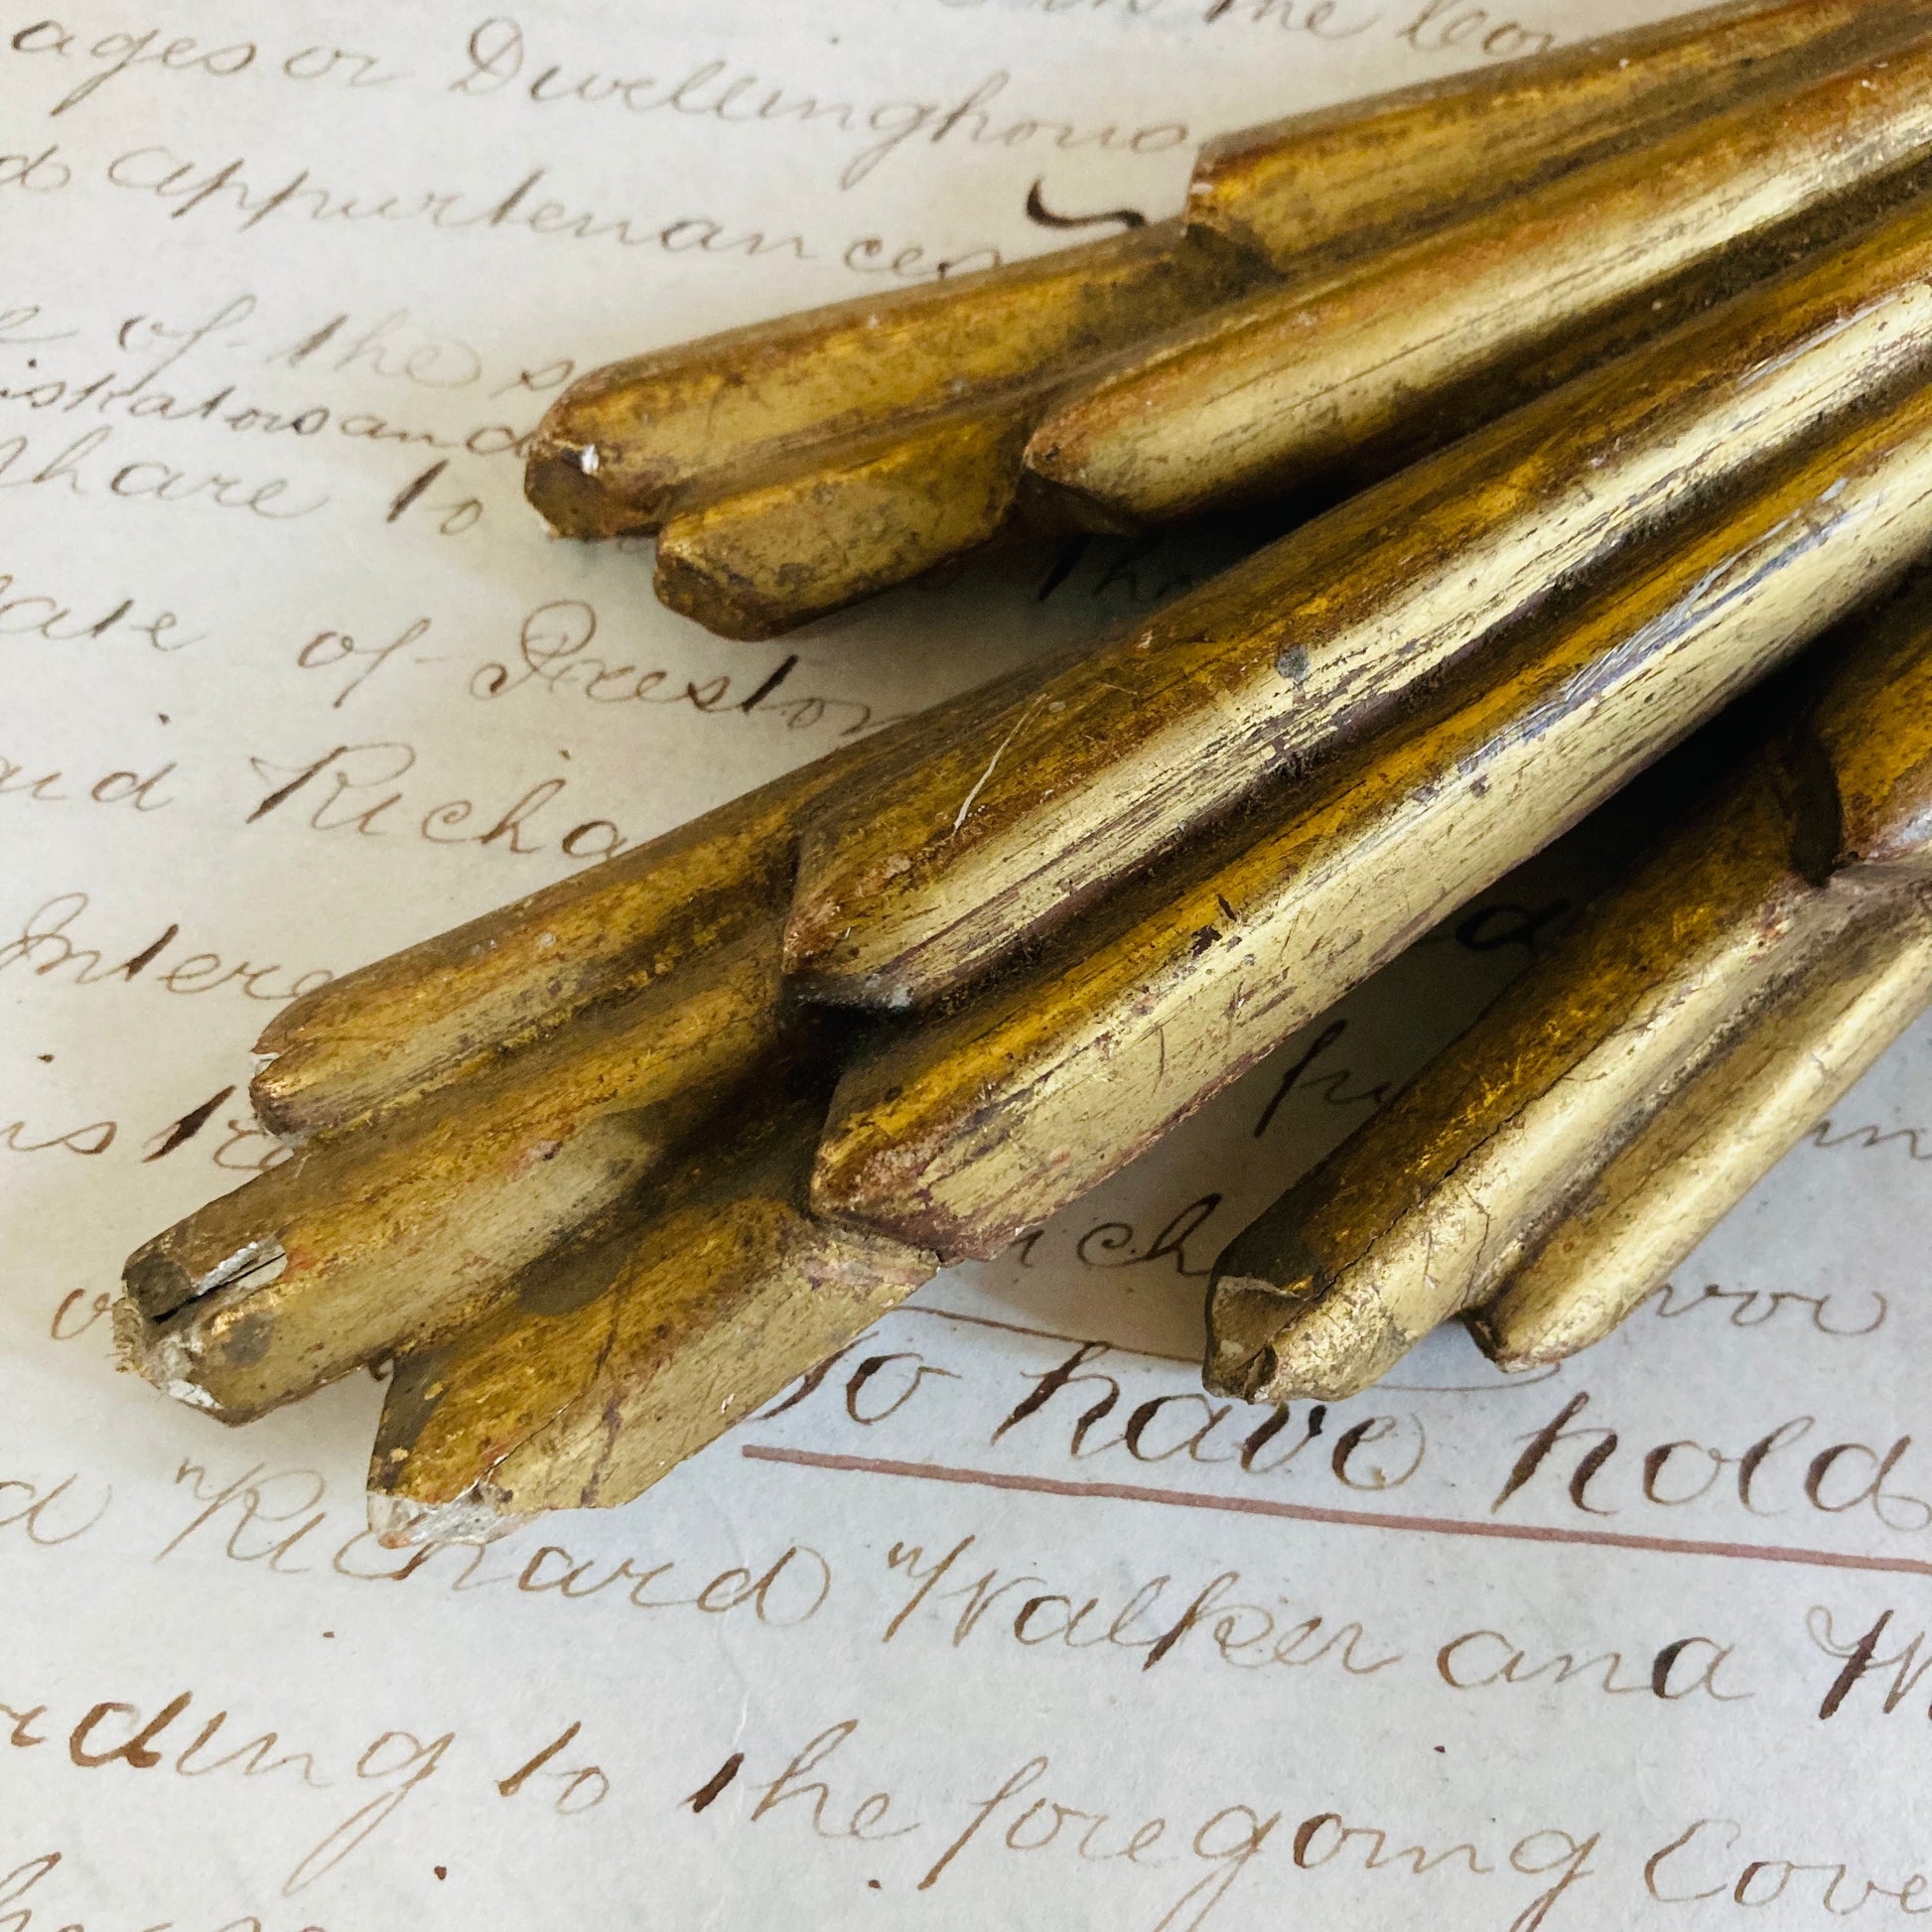 in the
ages or Dwellinghous
d appurtenances
of the s
istrators and
share to
ate of Preston
aid Richa
Intere
ich
To have hold
d Richard Walker and W
rding to the foregoing Cove